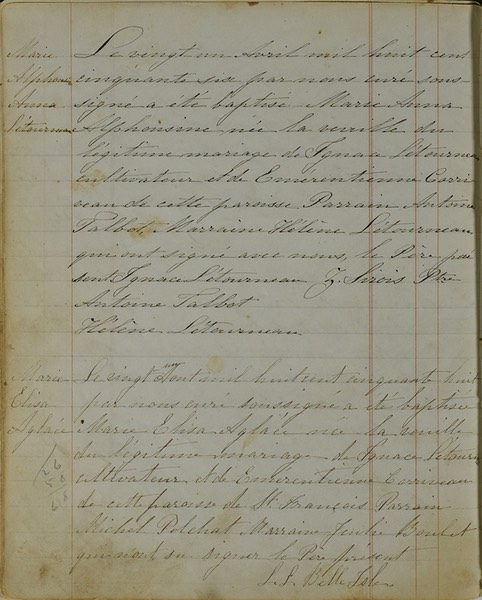 Marie
Alphons
Anna
Létourneau
Le vingt un Avril mil huit cent
cinquante six par nous curé sous-
signé a été baptisé Marie Anna
Alphonsine née la veille du
légitime mariage de Ignace Létourneau
cultivateur et de Emérentienne Corri
veau de cette paroisse Parrain Antoine
Talbot, Marraine Hélène Létourneau
qui ont signé avec nous, le Père pré
sent Ignace Létourneau Z. Sirois Ptre
Antoine Talbot
Hélène Létourneau
Marie
Elisa
Aglaée
Le vingt un Aout mil huit cent cinquante huit
par nous curé soussigné a été baptisée
Marie Elisa Aglaée née la veille
du légitime mariage de Ignace Létour
cultivateur et de Emérentienne Corriveau
de cette paroisse de St. François Parrain
Michel Polchat Marraine Boulet
qui n'ont su signer le Père présent
Belle Isle